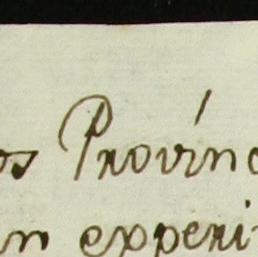 os Provinc
n experi